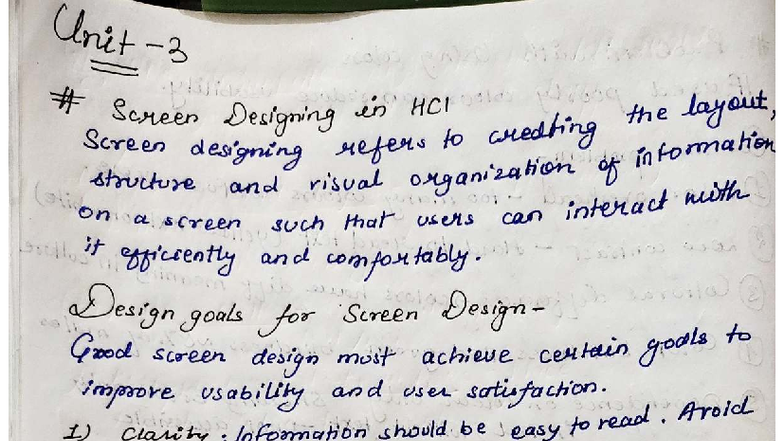 Unit - 3
# Screen Designing in HCI
Screen designing refers to creating the layout,
structure and visual organization of information
on a screen such that users can interact with
it efficiently and comfortably.
Design goals for Screen Design -
Good screen design most achieve certain goals to
improve usability and user satisfaction.
1) Clarity. Information should be easy to read. Avoid